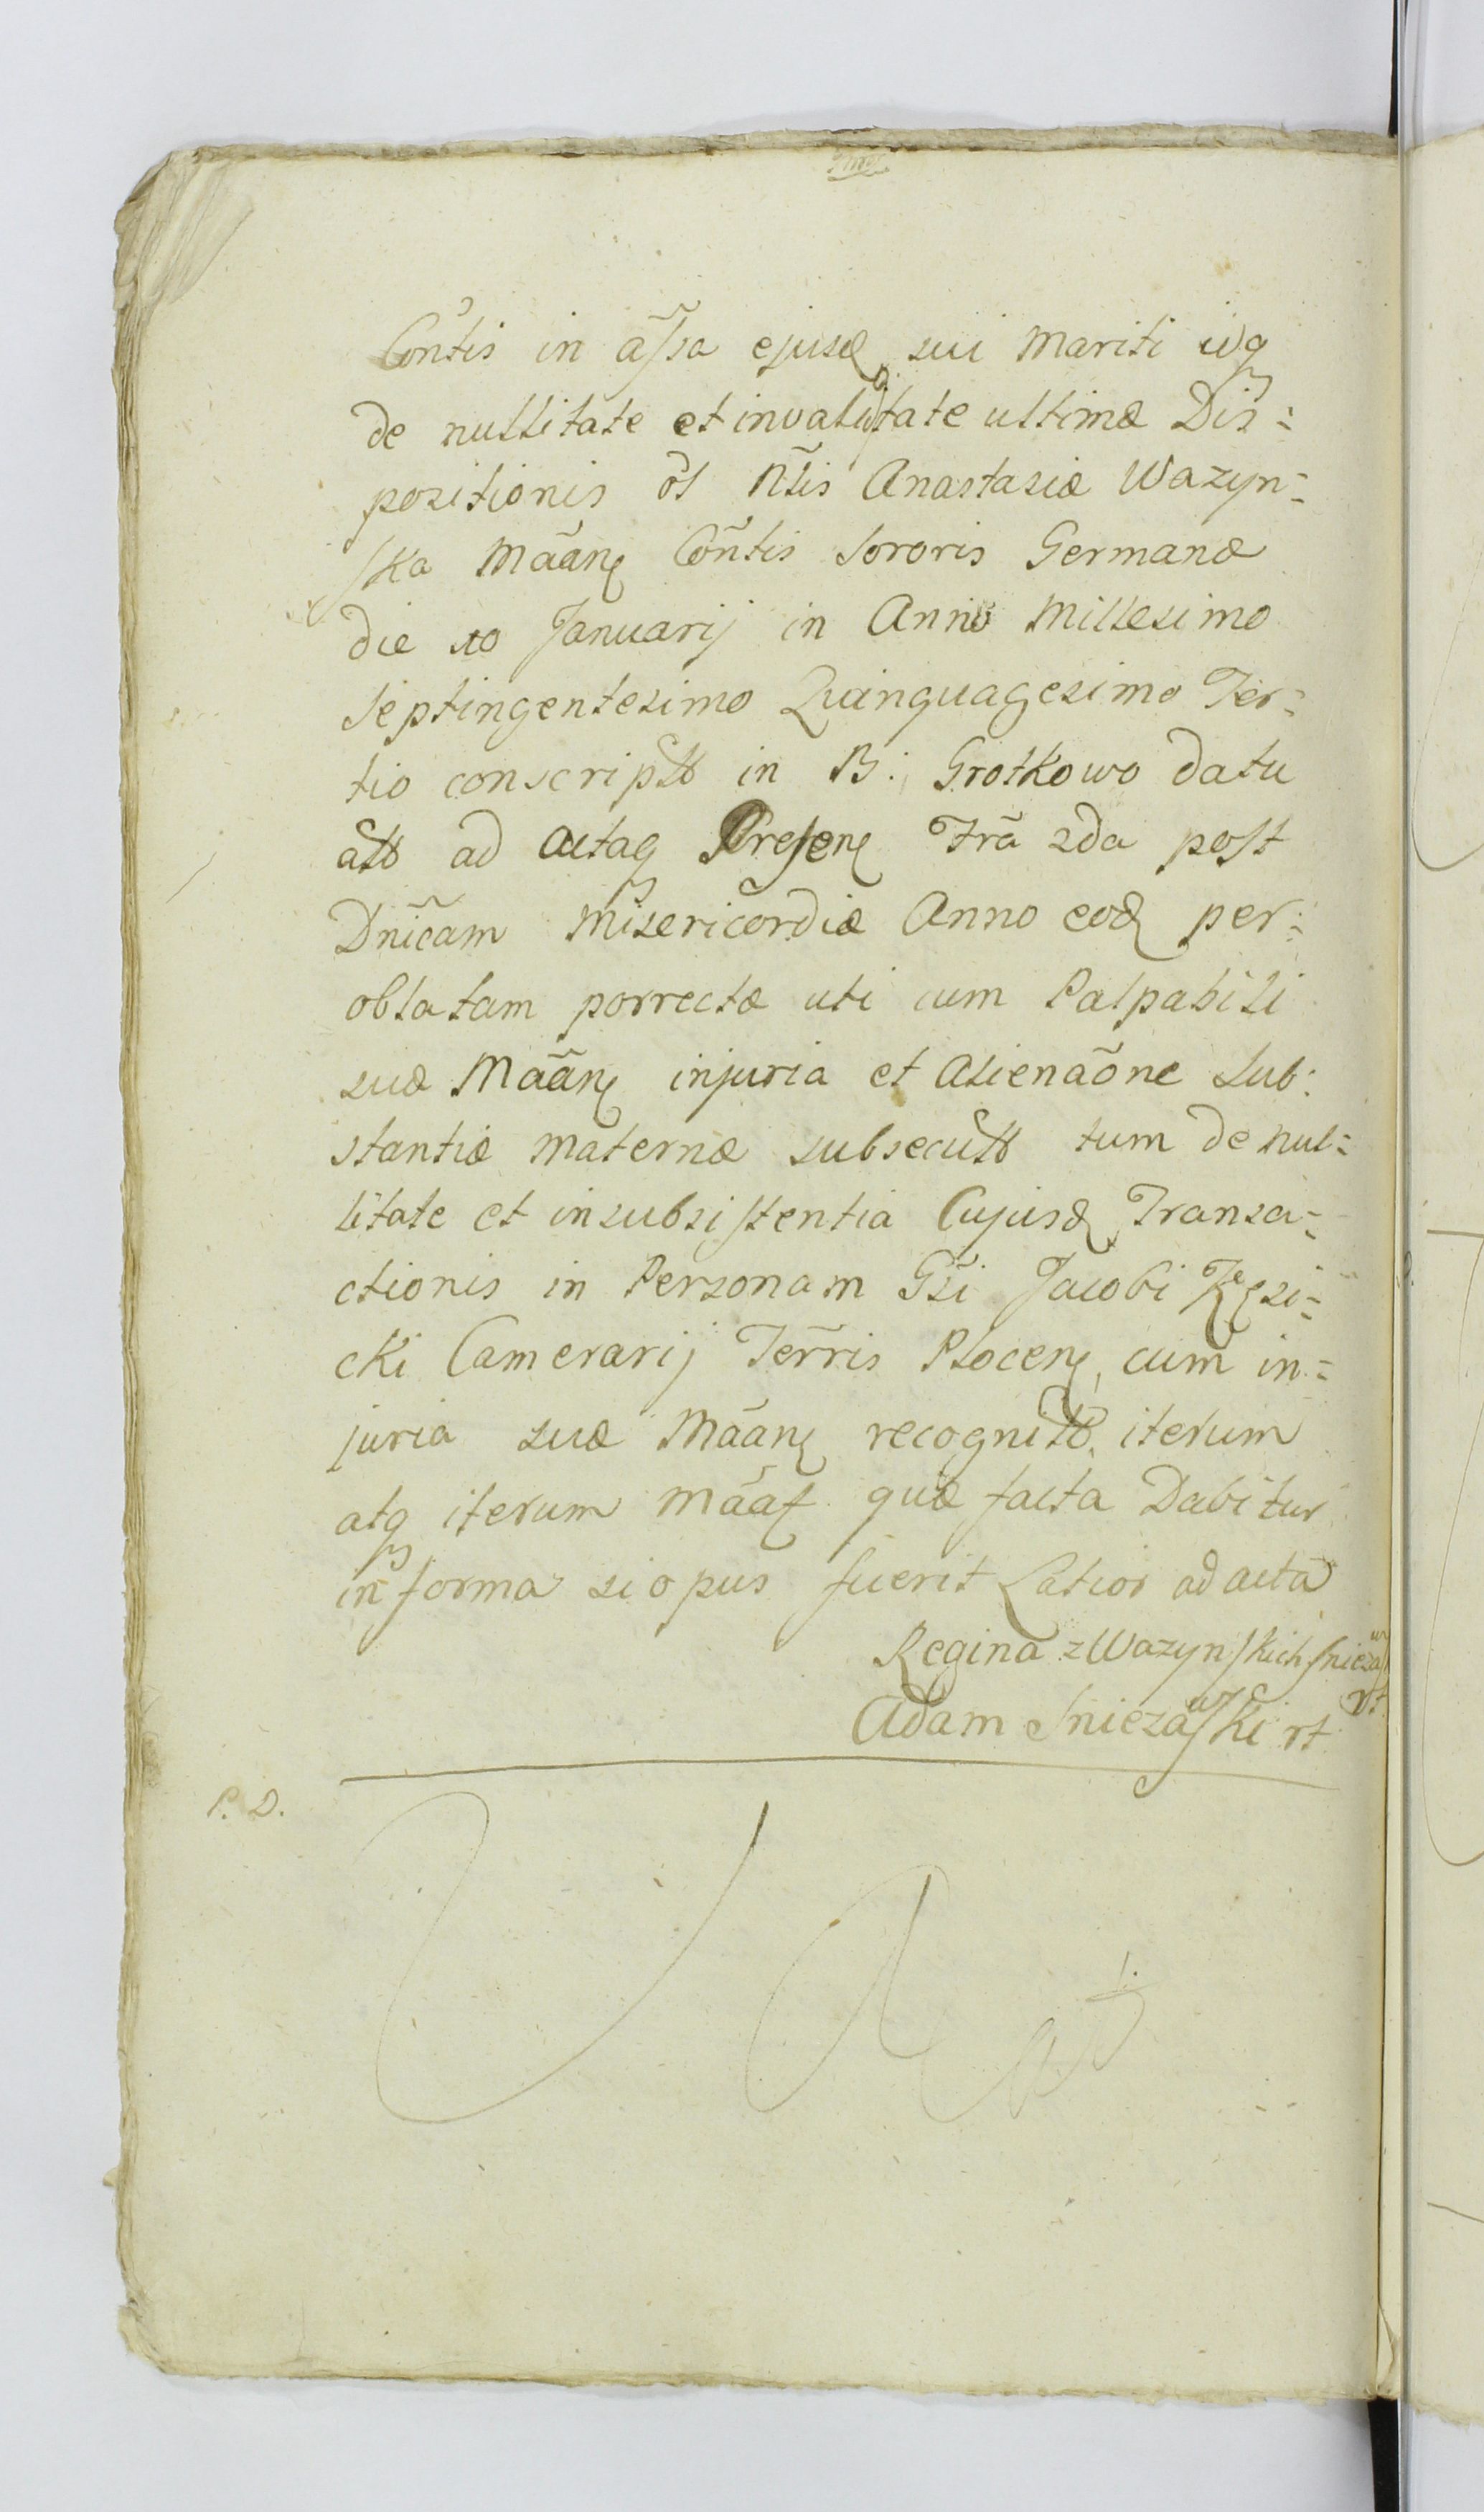 Cõntis in assã ejusđ sui Mariti idq
de nullitate et invaliditate ultimæ Dis=
positionis ol Nlis Anastasiæ Wazyn=
ska Māanę Cõntis Sororis Germanæ
die 10 Januarij in Anno Millesimo
Septingentesimo Quinquagesimo Ter=
tio conscriptæ in B: Grotkowo datu
ad Actaq Presenę Frã 2da post
Dnĩcam Misericordiæ Anno eođ per=
oblatam porrectæ uti cum Palpabili
suæ Māanę injuria et Alienaõne Sub:
stantiæ Maternæ subsecutæ tum de nul=
litate et insubsistentia Cujusđ Transa=
ctionis in Personam Gsi Jacobi Kęsi=
cki Camerarij Terris Plocenę, cum in=
juria suæ Māanę recognitæ iterum
atq iterum Māaʄ quæ facta Dabitur
in forma si opus fuerit Latior ad acta
Regina z Wazynskich Sniezaw
rt
Adam Sniezawski rt
P. D.